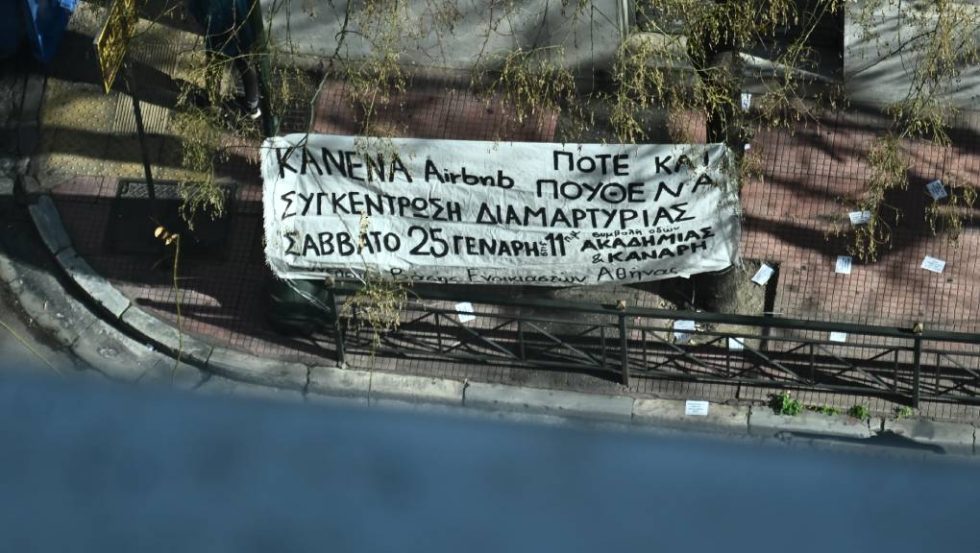 ΚΑΝΕΝΑ Airbnb ΠΟΤΕ ΚΑΙ
ΠΟΥΘΕΝΑ
ΣΥΓΚΕΝΤΡΩΣΗ ΔΙΑΜΑΡΤΥΡΙΑΣ
ΣΑΒΒΑΤΟ 25 ΓΕΝΑΡΗ στις 11 πμ συμβολή οδών
ΑΚΑΔΗΜΙΑΣ
& ΚΑΝΑΡΗ
Βάσης Ενοικιαστών Αθήνας